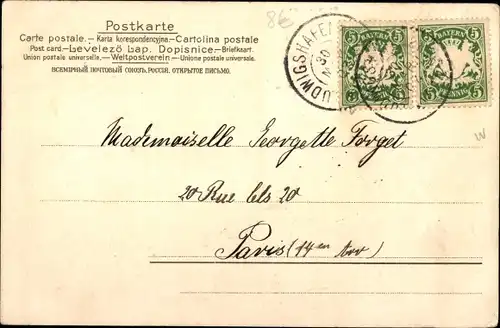 Postkarte
Carte postale. – Karta korespondencyjna – Cartolina postale
Post card. – Levelező Lap. Dopisnice. – Briefkaart.
Union postale universelle. – Weltpostverein – Unione postale universale.
ВСЕМІРНЫЙ ПОЧТОВЫЙ СОЮЗЪ. РОССІЯ. ОТКРЫТОЕ ПИСЬМО.
LUDWIGSHAFEN
30
5 BAYERN 5
PFENNIG
5 BAYERN 5
PFENNIG
Mademoiselle Georgette Forget
20 Rue bis 20
Paris (14en Arr)